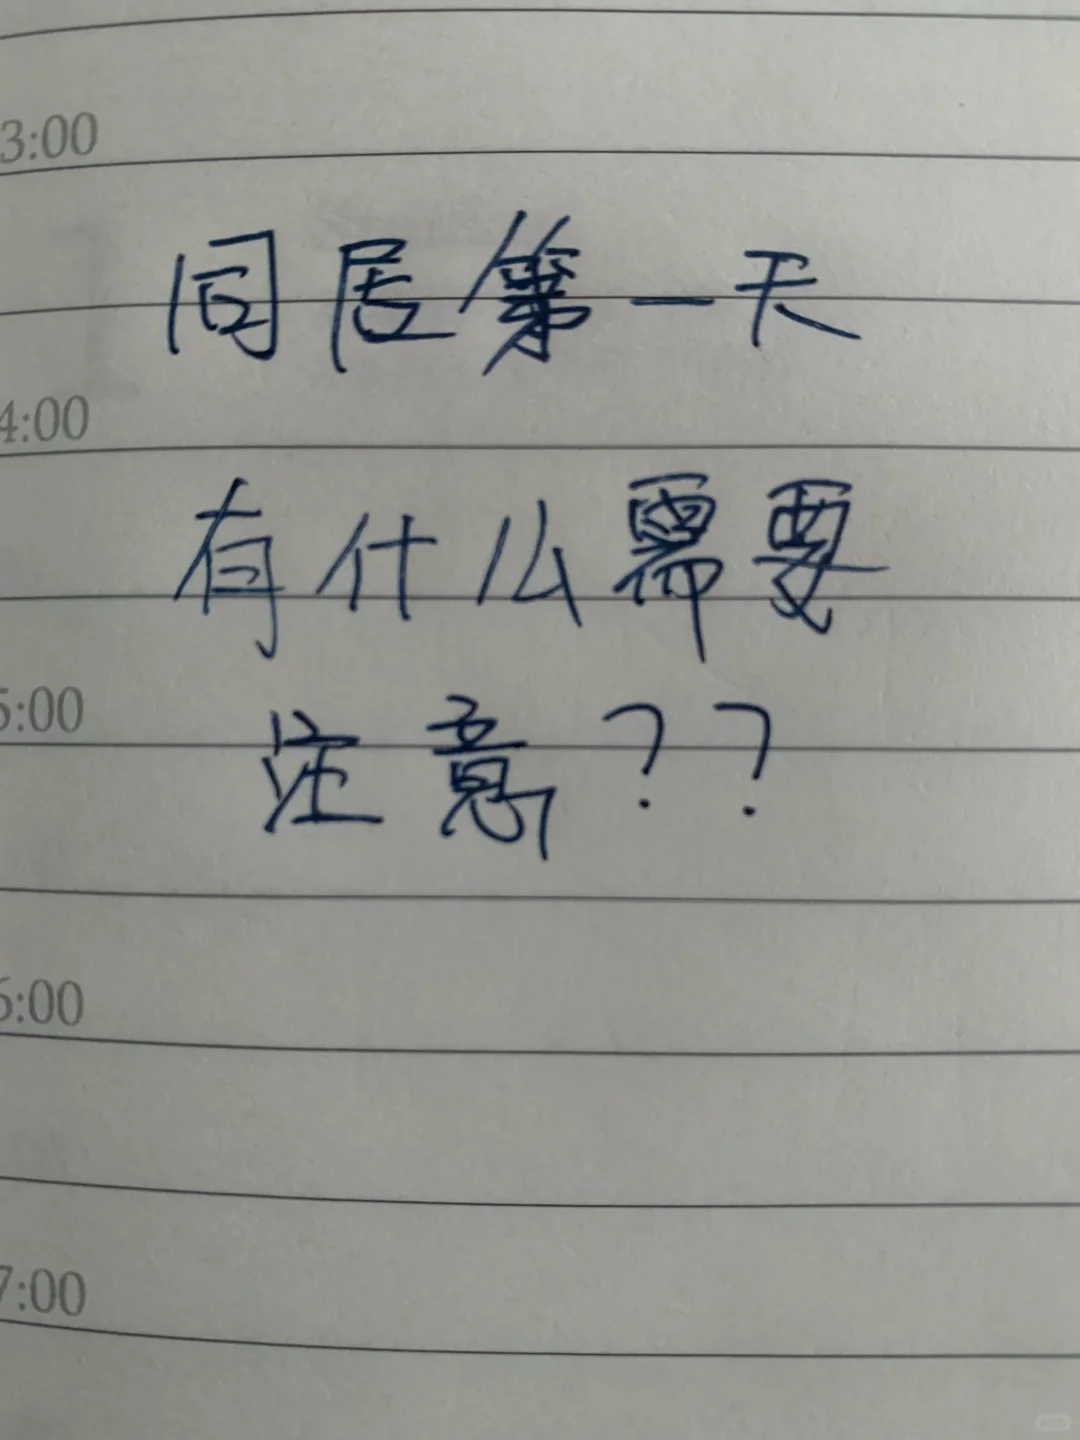 3:00
同居第一天
4:00
有什么需要
5:00
注意??
6:00
7:00